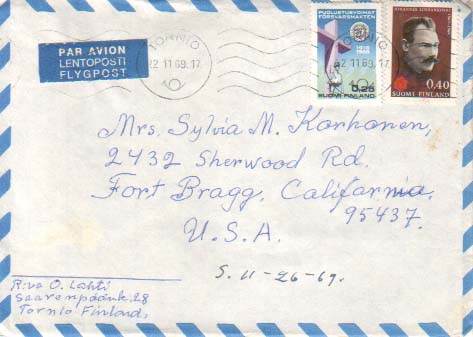 PAR AVION
LENTOPOSTI
FLYGPOST
TORNIO
22.11.69.17
TORNIO
22.11.69.17
PUOLUSTUSVOIMAT
FÖRSVARSMAKTEN
1918
1968
0,25
SUOMI FINLAND
JOHANNES LINNANKOSKI
0,40
SUOMI FINLAND
Mrs. Sylvia M. Korhonen,
2432 Sherwood Rd.
Fort Bragg, California
95437.
U.S.A.
S. 11-26-69.
O. Lahti
28
Tornio Finland,